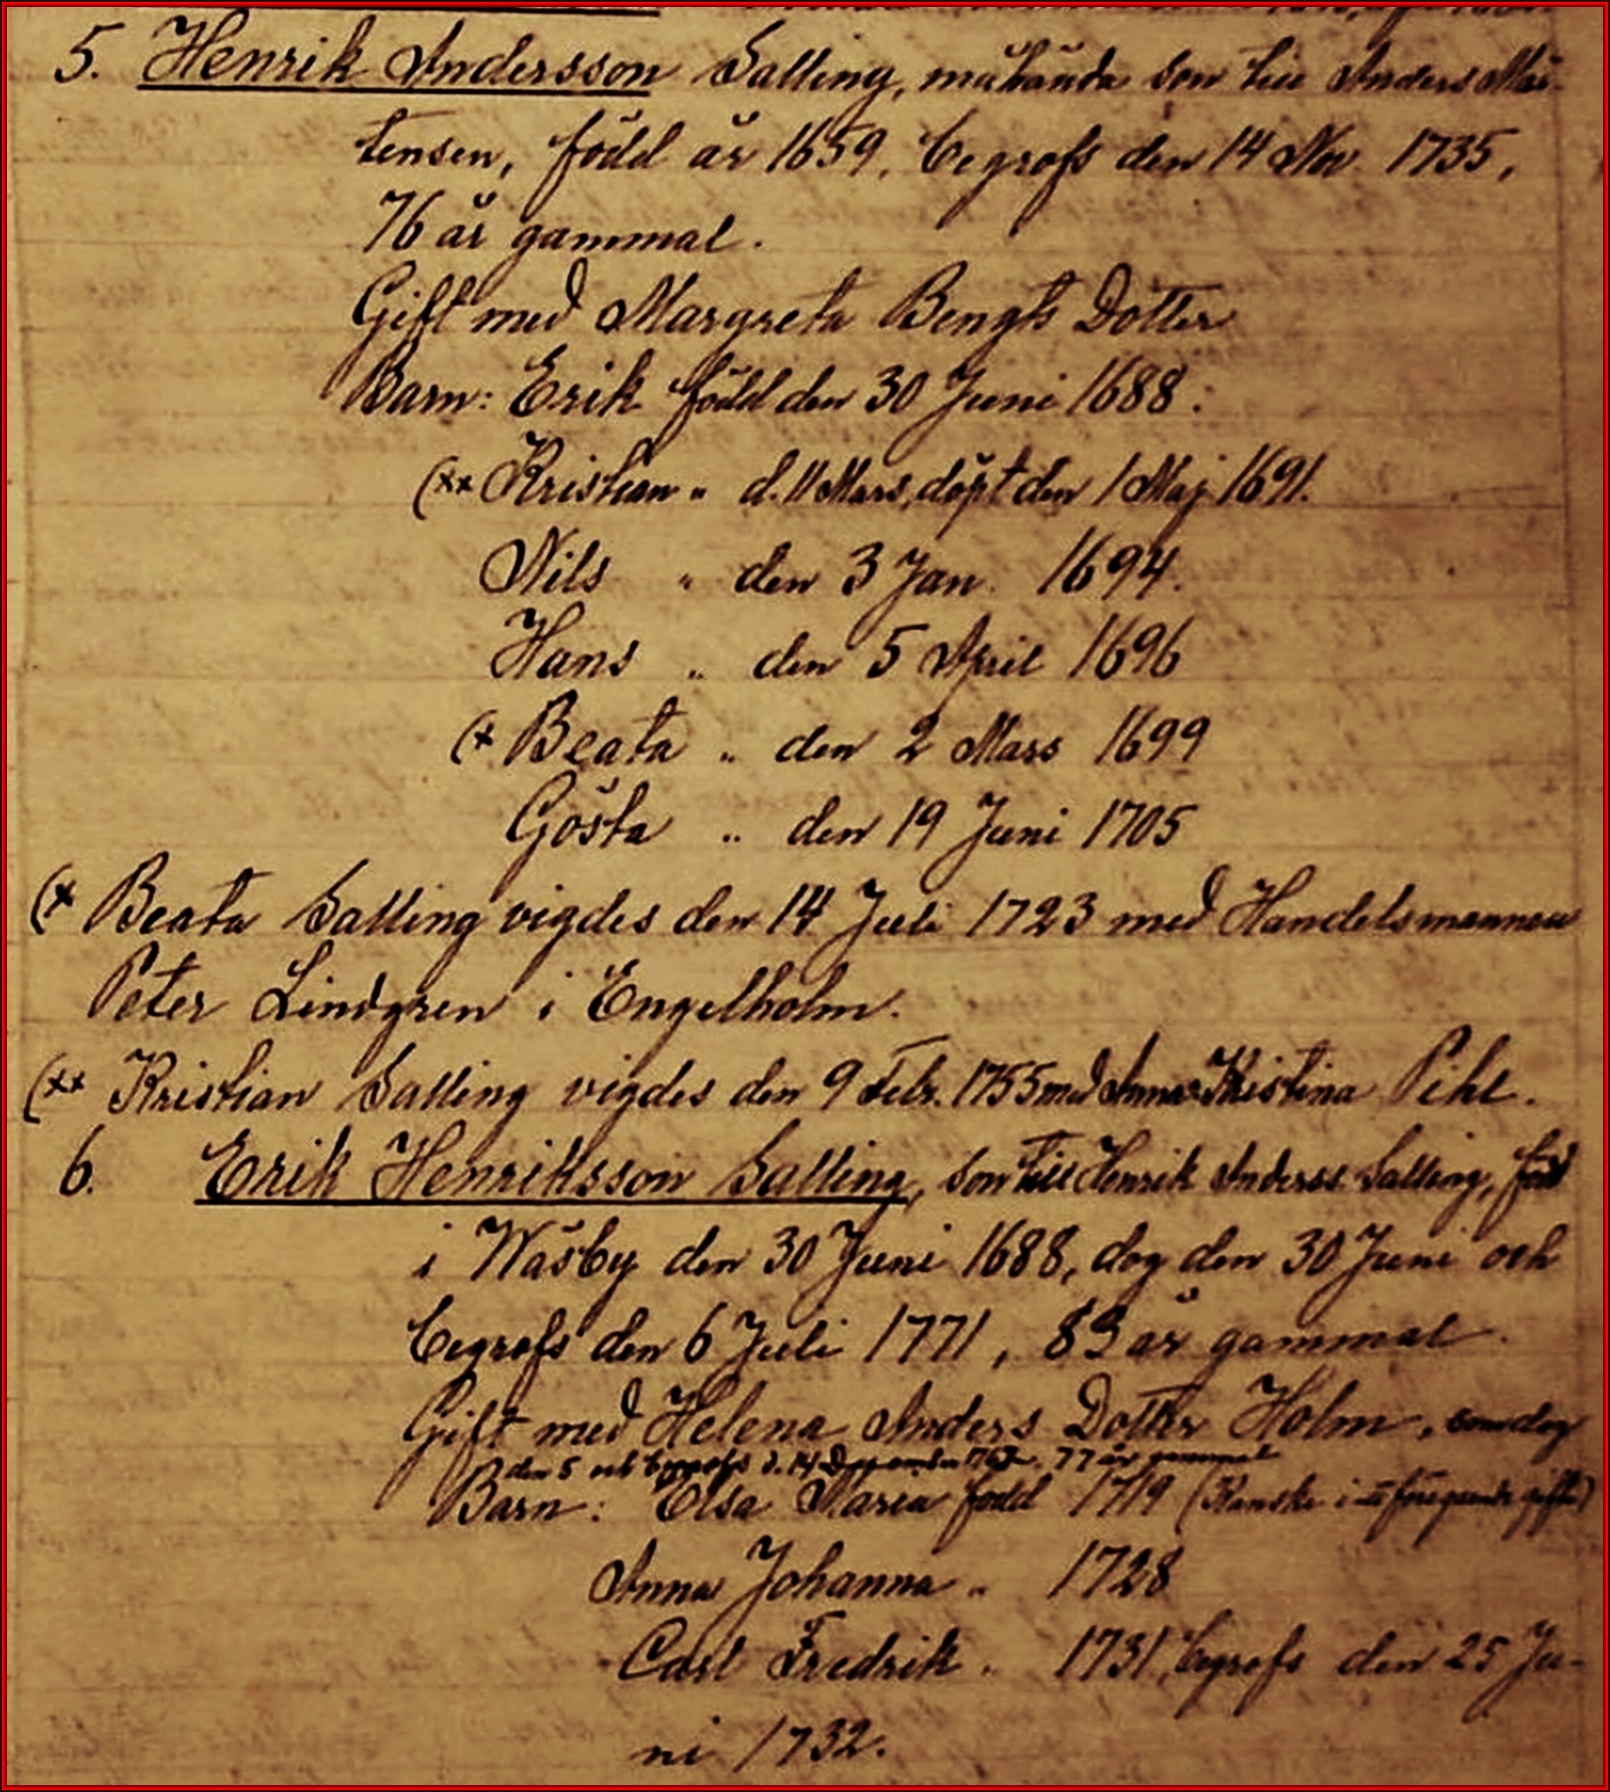 5. Henrik Andersson Salling, måhända son till Anders Mår-
tensen, född år 1659, begrofs den 14 Nov 1735,
76 år gammal.
Gift med Margreta Bengts Dotter
Barn: Erik född den 30 Juni 1688.
(xx Kristian " d. 11 Mars, döpt den 1 Maj 1691.
Nils " den 3 Jan. 1694.
Hans " den 5 April 1696
(x Beata " den 2 Mars 1699
Gösta " den 19 Juni 1705
(x Beata Salling vigdes den 14 Juli 1723 med Handelsmannen
Peter Lindgren i Engelholm.
(xx Kristian Salling vigdes den 9 Febr. 1755 med Anna Kristina Pihl.
6. Erik Henriksson Salling, son till Henrik Anderss. Salling, född
i Wäsby den 30 Juni 1688, dog den 30 Juni och
begrofs den 6 Juli 1771, 83 år gammal.
Gift med Helena Anders Dotter Holm, som dog
den 5 och begrofs d. 14 77 år gammal
Barn: Elsa Maria född 1719 (Kanske i föregående gifte)
Anna Johanna " 1728
Carl Fredrik " 1731, begrofs den 25 Ju-
ni 1732.